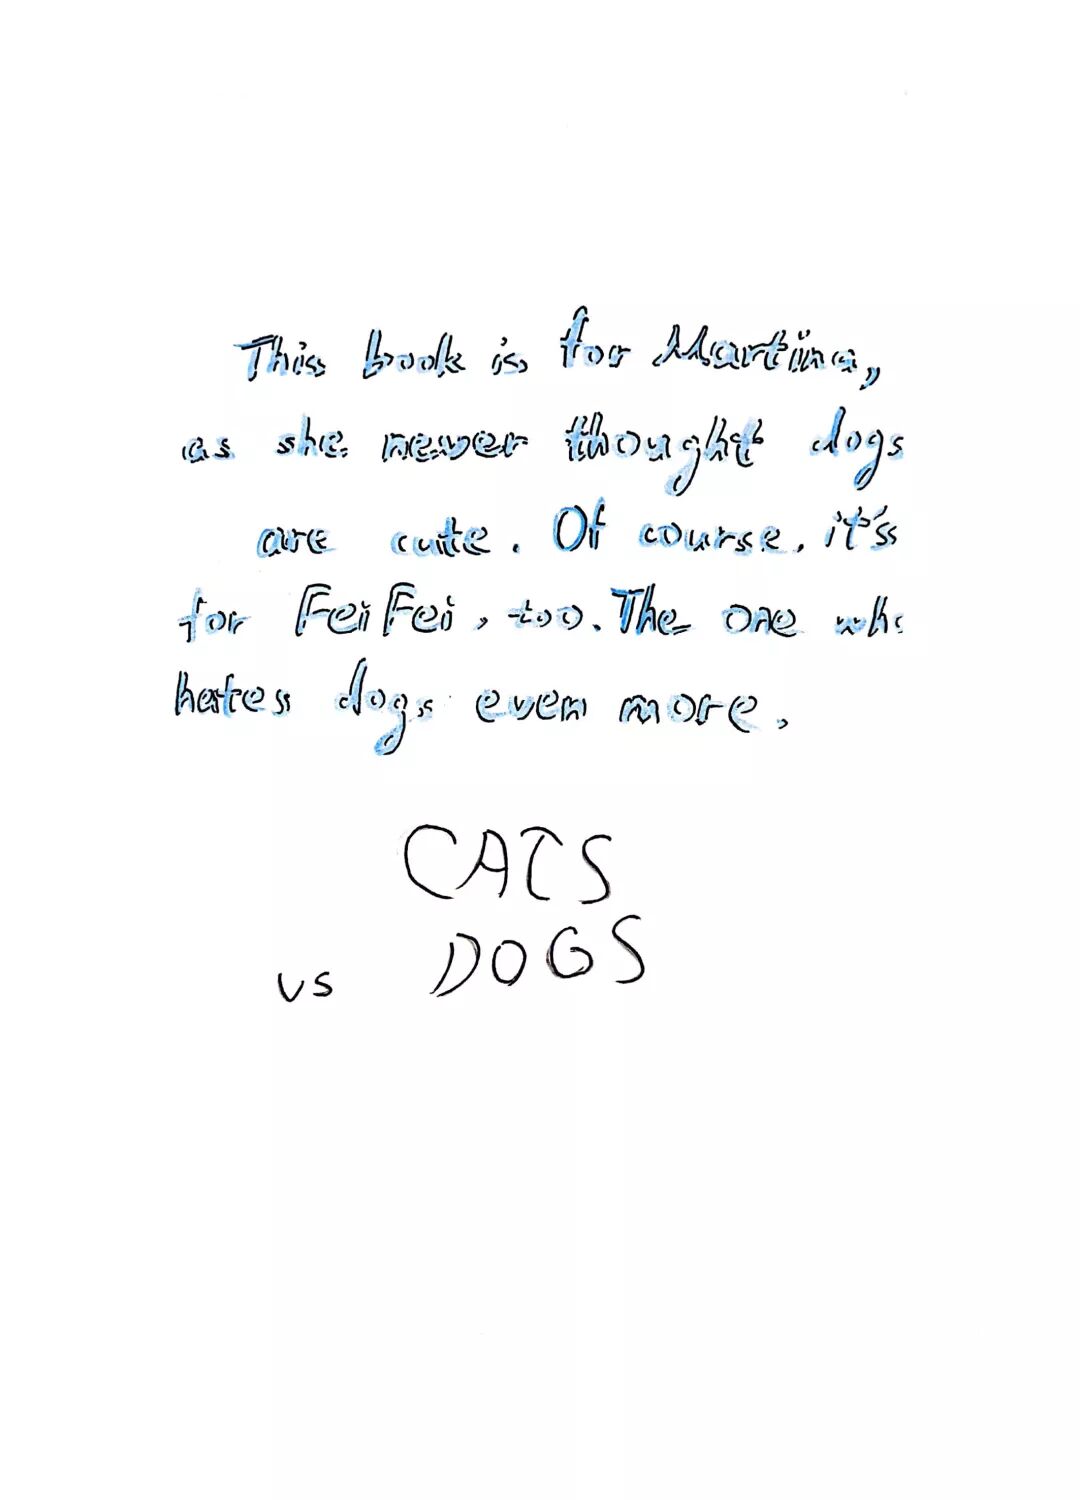 This book is for Martina,
as she never thought dogs
are cute. Of course, it's
for FeiFei, too. The one who
hates dogs even more.
CATS
vs DOGS